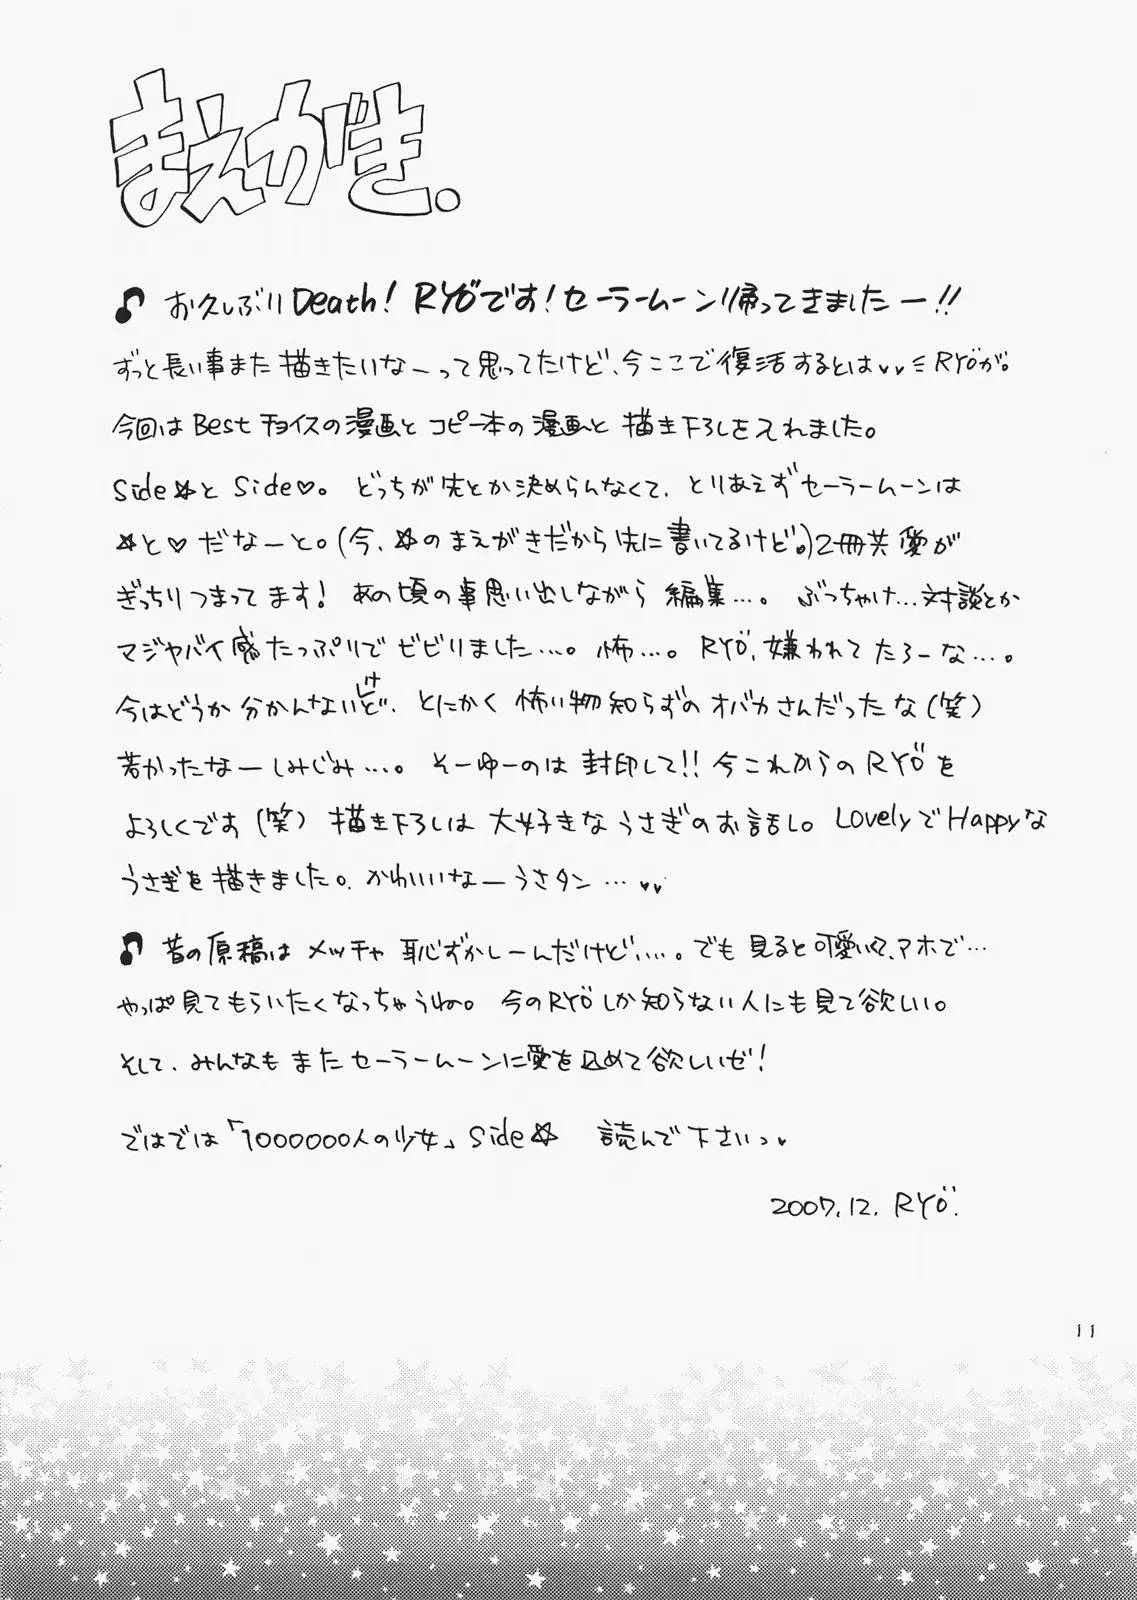 まえがき.
お久しぶりDeath! RYÖです!セーラームーン帰ってきましたー!!
ずっと長い事また描きたいなーって思ってたけど、今ここで復活するとは♥♥ミRYÖが。
今回はBestチョイスの漫画とコピー本の漫画と描き下ろしをえれました。
Side☆とSide♡。どっちが先とか決めらんなくて、とりあえずセーラームーンは
☆と♡だなーと。(今、☆のまえがきだから先に書いてるけど。)2冊共愛が
ぎっちりつまってます!あの頃の事思い出しながら編集…。ぶっちゃけ…対談とか
マジヤバイ感たっぷりでビビりました…。怖…。RYÖ、嫌われてたろーな…。
今はどうか分かんないけど、とにかく怖い物知らずのオバカさんだったな(笑)
若かったなーしみじみ…。そーゆーのは封印して!!今これからのRYÖを
よろしくです(笑)描き下ろしは大好きなうさぎのお話し。LovelyでHappyな
うさぎを描きました。かわいいなーうさタン…♥♥
昔の原稿はメッチャ恥ずかしーんだけど…。でも見ると可愛いくて、アホで…
やっぱ見てもらいたくなっちゃうね。今のRYÖしか知らない人にも見て欲しい。
そして、みんなもまたセーラームーンに愛を込めて欲しいぜ!
ではでは「1000000人の少女」Side☆ 読んで下さいっ♥
2007.12. RYÖ.
11